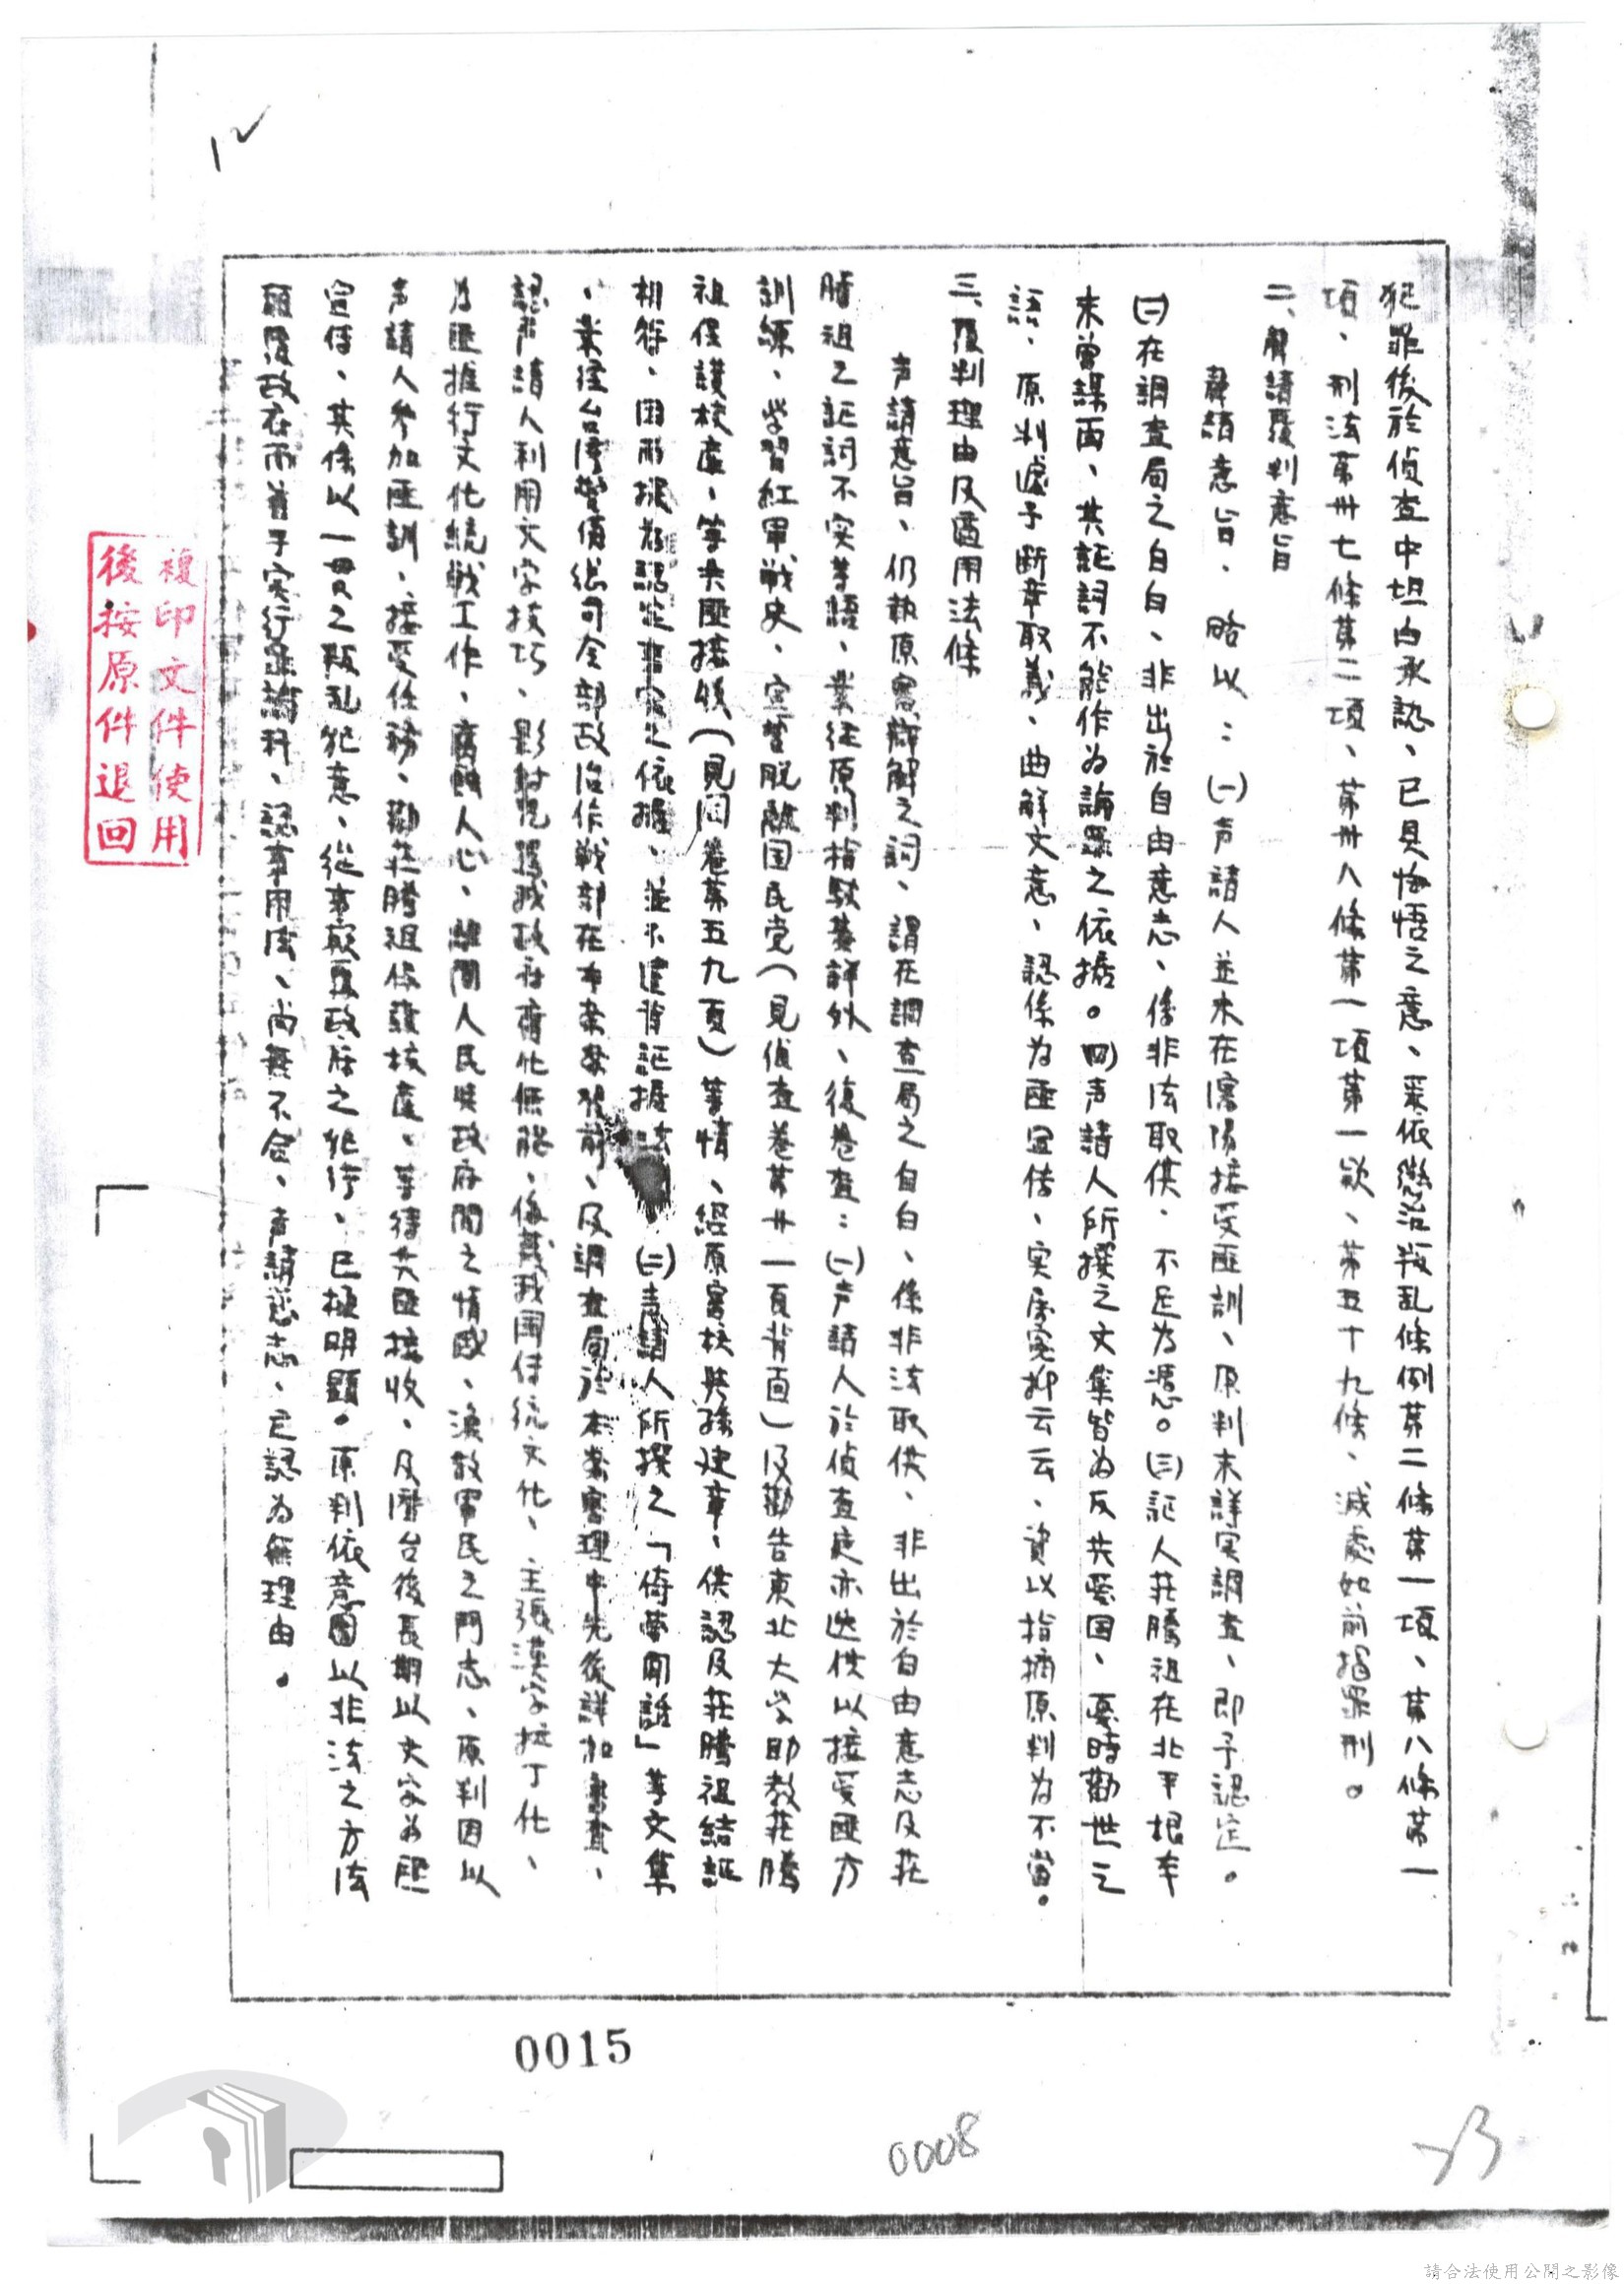 犯罪後於偵查中坦白承認、已具悔悟之意、爰依懲治叛乱條例第二條第一項、第八條第一
項、刑法第卅七條第二項、第卅八條第一項第一欵、第五十九條、減處如前揭罪刑。
二、聲請覆判意旨
聲請意旨、略以：㈠声請人並未在瀋陽接受匪訓、原判未詳实調查、即予認定。
㈡在調查局之自白、非出於自由意志、係非法取供、不足為憑。㈢証人莊騰祖在北平根本
未曾謀面、其証詞不能作為論罪之依據。㈣声請人所撰之文集皆為反共愛国、憂時勸世之
語、原判遽予断章取義、曲解文意、認係为匪宣传、实属冤抑云云、資以指摘原判为不當。
三、覆判理由及適用法條
声請意旨、仍執原審辯解之詞、謂在調查局之自白、係非法取供、非出於自由意志及莊
騰祖之証詞不实等語、業経原判指駁綦詳外、復卷查：㈠声請人於偵查庭亦迭供以接受匪方
訓練、学習紅軍戦史、宣誓脱離国民党（見偵查卷第廿一頁背面）及勸告東北大学助教莊騰
祖保護校產、等共匪接收（見同卷第五九頁）等情、經原審核與孫建章、供認及莊騰祖結証
相符、因而採為認定事实之依據、並不違背証據法 ㈡声請人所撰之「倚夢閒話」等文集
、業経台湾警備総司令部政治作戦部在本案案發前、及調查局於本案審理中先後詳加審查、
認声請人利用文字技巧、影射児罵我政府腐化無能、侮蔑我国传統文化、主張漢字拉丁化、
为匪推行文化統戦工作、腐蝕人心、離間人民與政府間之情感、渙散軍民之鬥志、原判因以
声請人參加匪訓、接受任務、勸莊騰祖保護校產、等待共匪接收、及潛台後長期以文字为匪
宣传、其係以一貫之叛乱犯意、從事顛覆政府之犯行、已極明顯。原判依意圖以非法之方法
顛覆政府而着手实行連論科、認事用法、尚無不合、声請意志、应認为無理由。
複印文件使用
後按原件退回
0015
0008
請合法使用公開之影像